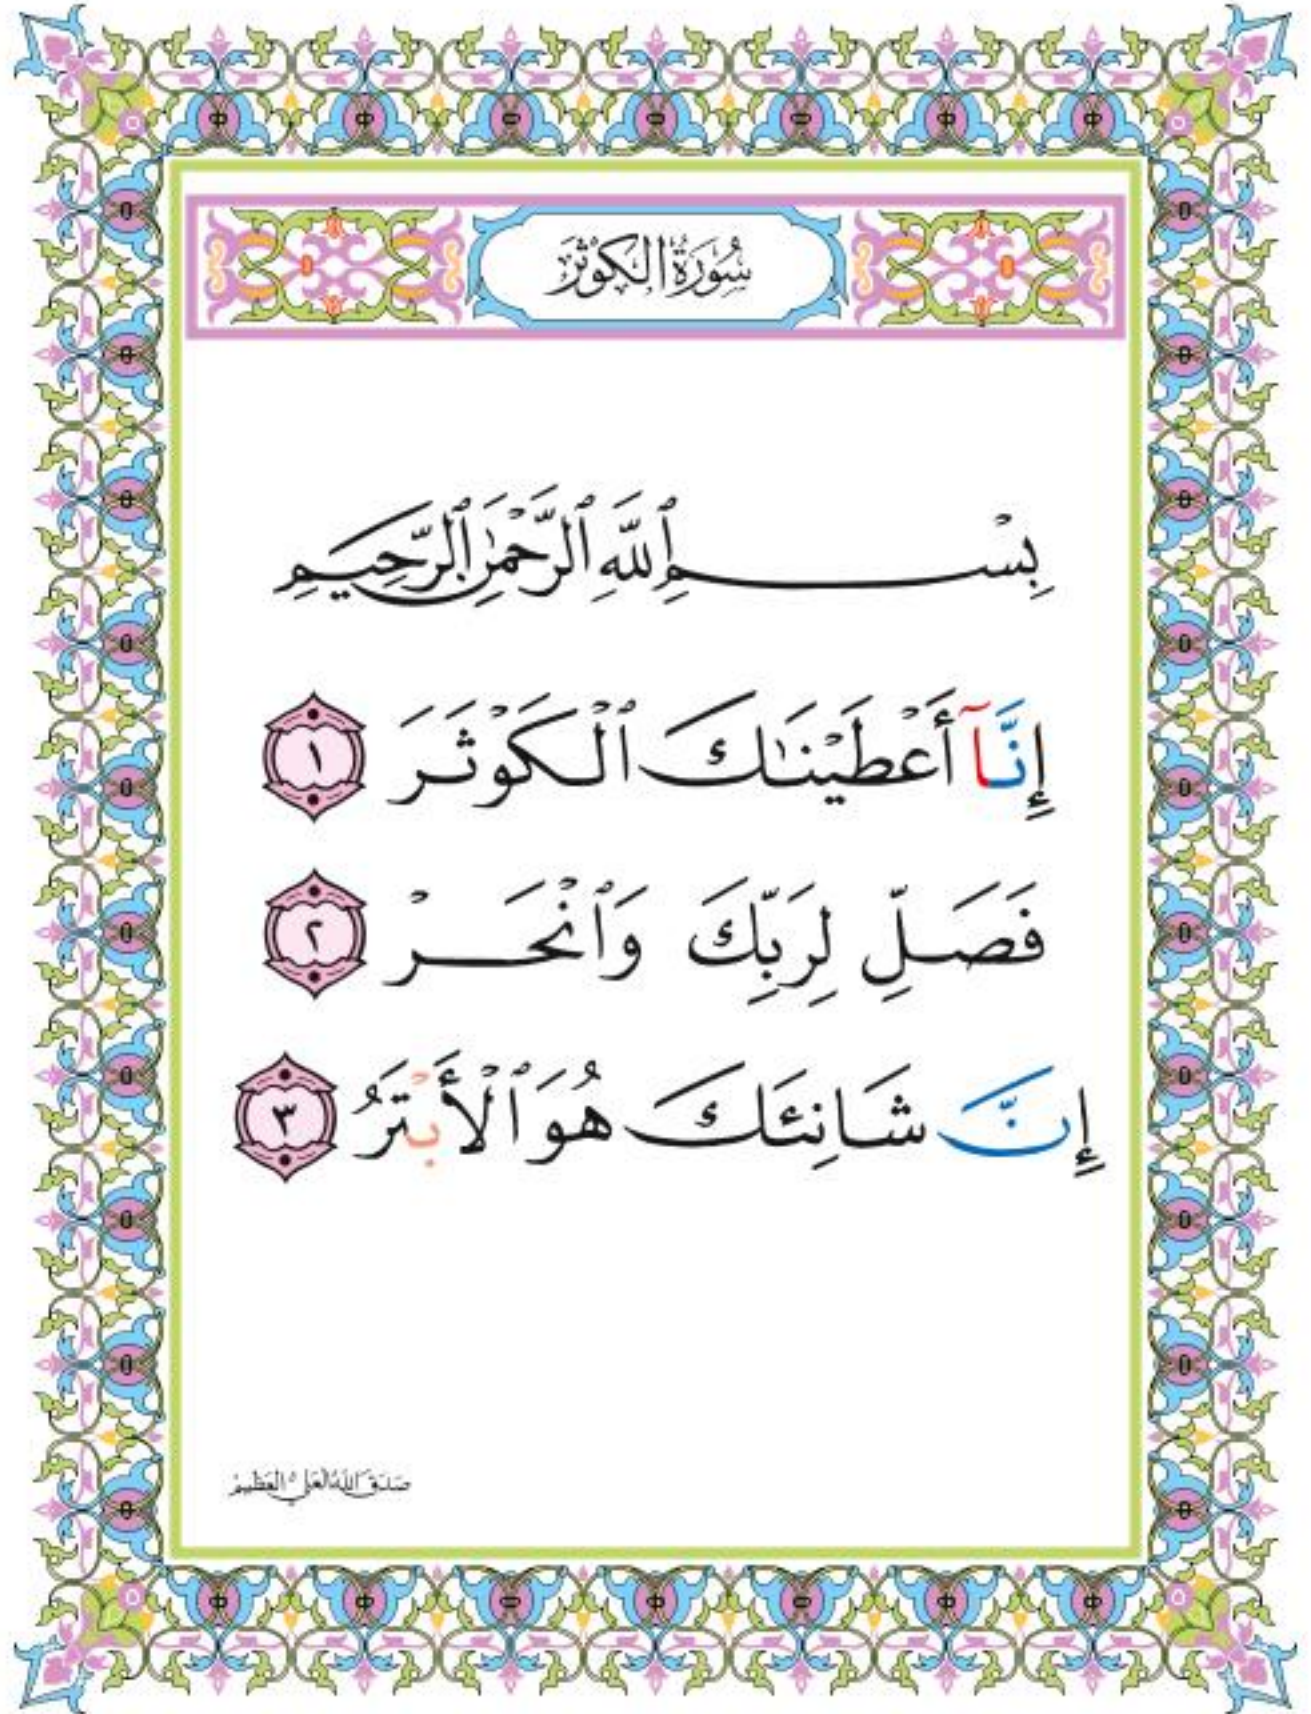 سُورَةُ الْكَوْثَرَ
بِسْمِ ٱللَّهِ ٱلرَّحْمَٰنِ ٱلرَّحِيمِ
إِنَّآ أَعْطَيْنَٰكَ ٱلْكَوْثَرَ ١
فَصَلِّ لِرَبِّكَ وَٱنْحَرْ ٢
إِنَّ شَانِئَكَ هُوَ ٱلْأَبْتَرُ ٣
صَدَقَ اللهُ الْعَلِيُّ الْعَظِيمُ